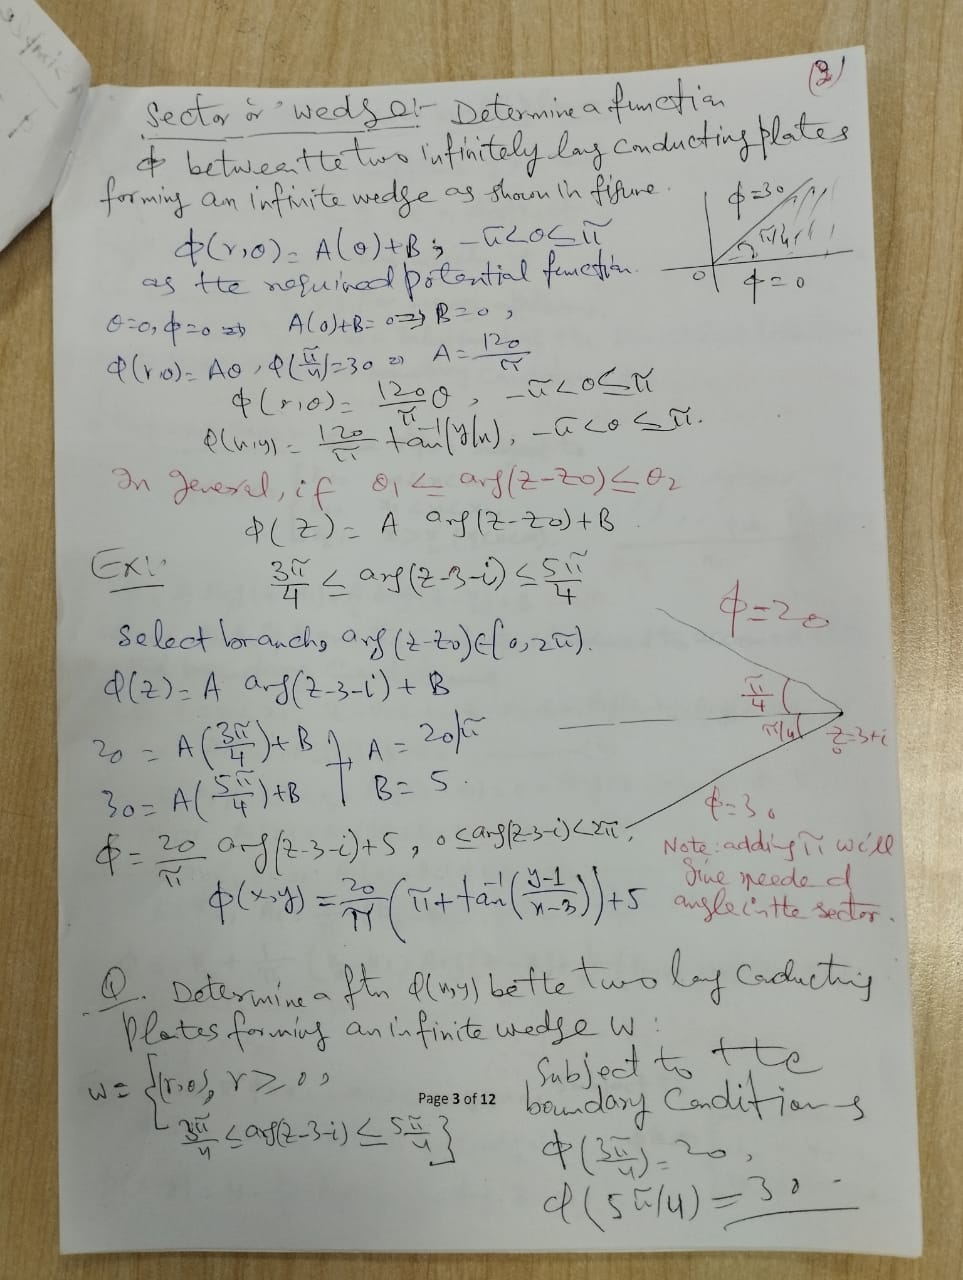 (3)
Sector or wedge:- Determine a function
ϕ between the two infinitely long conducting plates
forming an infinite wedge as shown in figure.
ϕ=30
π/4
0
ϕ=0
ϕ(r,θ)= A(θ)+B; -π<θ≤π
as the required potential function.
θ=0, ϕ=0 ⇒ A(0)+B=0 ⇒ B=0,
ϕ(r,θ)= Aθ, ϕ(π/4)=30 ⇒ A=120/π
ϕ(r,θ)= 120/π θ, -π<θ≤π
ϕ(x,y)= 120/π tan⁻¹(y/x), -π<θ≤π.
In general, if θ₁ ≤ arg(z-z₀) ≤ θ₂
ϕ(z)= A arg(z-z₀)+B
Ex:- 3π/4 ≤ arg(z-3-i) ≤ 5π/4
Select branch, arg(z-z₀)∈[0,2π).
ϕ(z)= A arg(z-3-i)+B
20 = A(3π/4)+B } A = 20/π
30 = A(5π/4)+B B = 5.
ϕ=20
π/4
π/4
z₀=3+i
ϕ=30
ϕ= 20/π arg(z-3-i)+5, 0≤arg(z-3-i)<2π,
ϕ(x,y) = 20/π (π+tan⁻¹((y-1)/(x-3)))+5
Note: adding π will
give needed
angle in the sector.
Q. Determine a ftn ϕ(x,y) bet the two long Conducting
plates forming an infinite wedge W:
W= {(r,θ), r≥0,
3π/4 ≤ arg(z-3-i) ≤ 5π/4}
Page 3 of 12
Subject to the
boundary Conditions
ϕ(3π/4)=20,
ϕ(5π/4)=30.